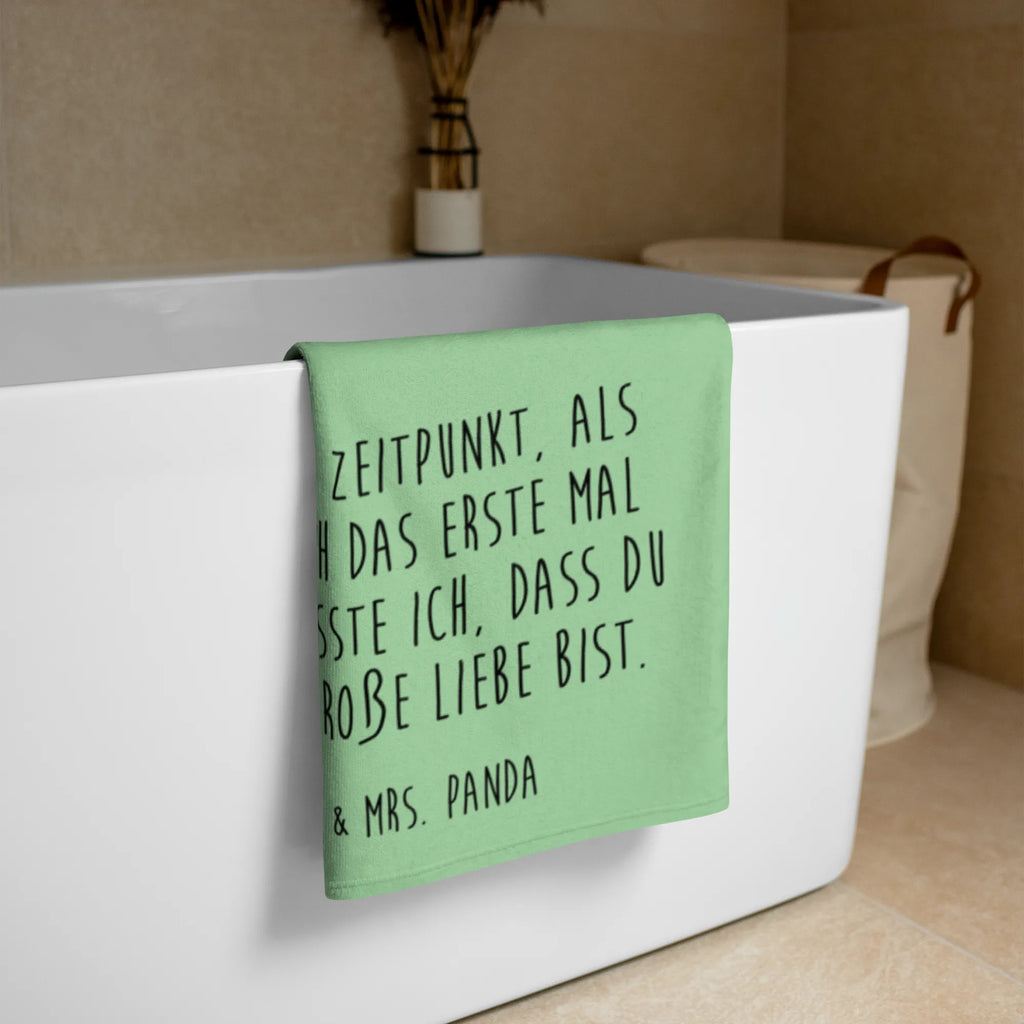 ZEITPUNKT, ALS
H DAS ERSTE MAL
SSTE ICH, DASS DU
ROßE LIEBE BIST.
& MRS. PANDA